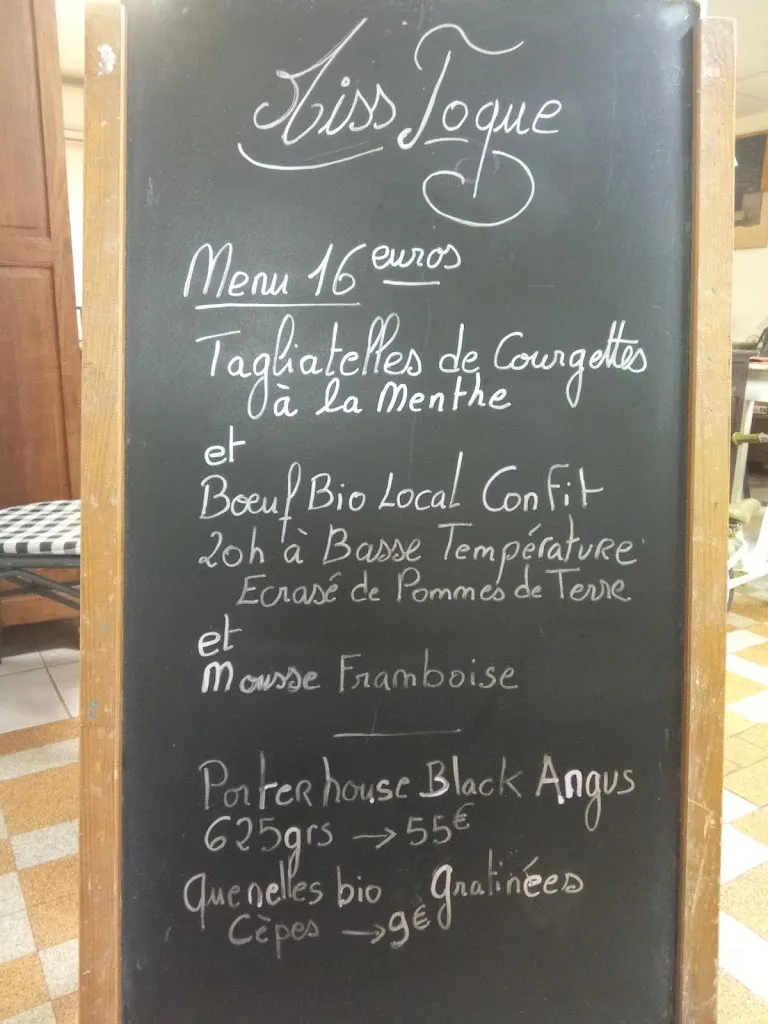 Miss Toque
Menu 16 euros
Tagliatelles de Courgettes
à la Menthe
et
Boeuf Bio Local Confit
20h à Basse Température
Ecrasé de Pommes de Terre
et
Mousse Framboise
Porterhouse Black Angus
625grs → 55€
Quenelles bio gratinées
Cèpes → 9€